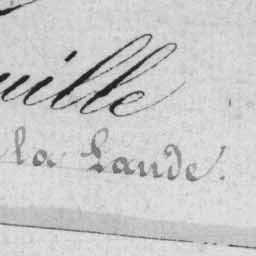 uille
la Lande.